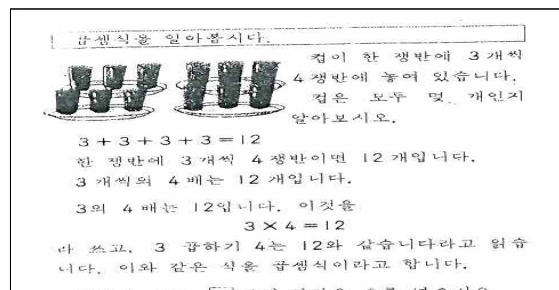 곱셈식을 알아봅시다.
컵이 한 쟁반에 3개씩
4쟁반에 놓여 있습니다.
컵은 모두 몇 개인지
알아보시오.
3 + 3 + 3 + 3 = 12
한 쟁반에 3개씩 4쟁반이면 12개입니다.
3개씩의 4배는 12개입니다.
3의 4배는 12입니다. 이것을
3 × 4 = 12
라 쓰고, 3 곱하기 4는 12와 같습니다라고 읽습
니다. 이와 같은 식을 곱셈식이라고 합니다.